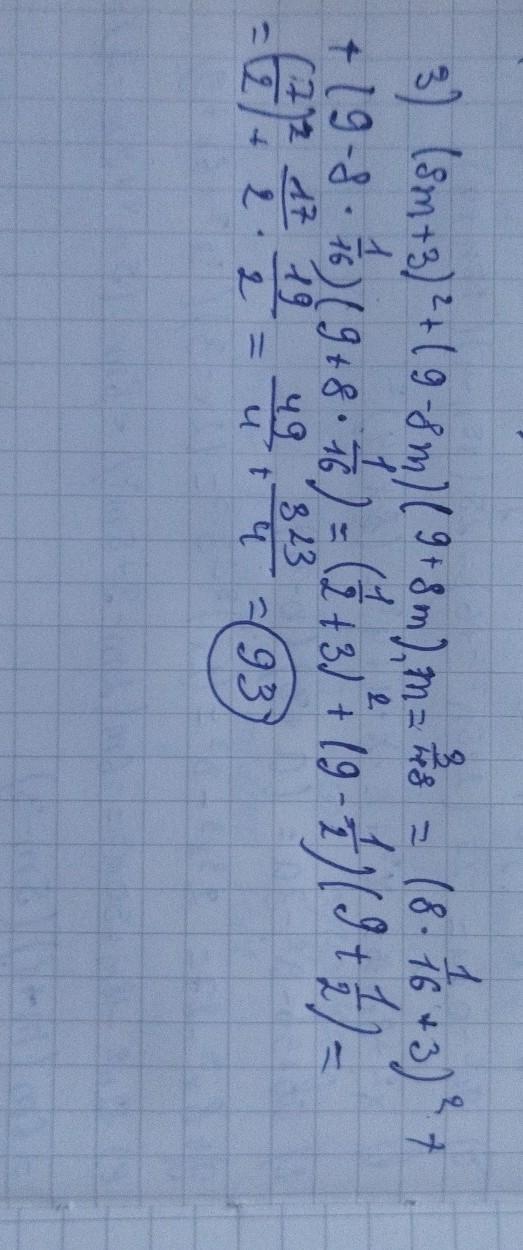 3) (8m+3)² + (9-8m)(9+8m), m = 3/48 = (8 · 1/16 + 3)² +
+ (9 - 8 · 1/16)(9 + 8 · 1/16) = (1/2 + 3)² + (9 - 1/2)(9 + 1/2) =
= (7/2)² + 17/2 · 19/2 = 49/4 + 323/4 = 93